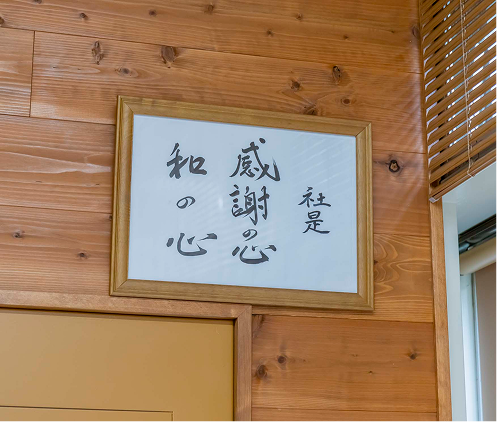 社是
感謝の心
和の心